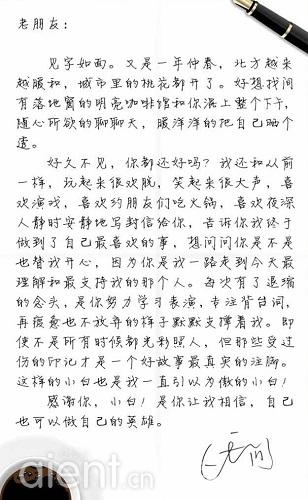 老朋友：
见字如面。又是一年仲春，北方越来
越暖和，城市里的桃花都开了。好想找间
有落地窗的明亮咖啡馆和你混上整个下午，
随心所欲的聊聊天，暖洋洋的把自己晒个
透。
好久不见，你都还好吗？我还和从前
一样，玩起来很欢脱，笑起来很大声，喜
欢演戏，喜欢约朋友们吃火锅，喜欢夜深
人静时安静地写封信给你，告诉你我终于
做到了自己最喜欢的事，想问问你是不是
也替我开心，因为你是我一路走到今天最
理解和最支持我的那个人。每次有了退缩
的念头，是你努力学习表演，专注背台词，
再疲惫也不放弃的样子默默支撑着我。即
使不是所有时候都光彩照人，但那些受过
伤的印记才是一个好故事最真实的注脚。
这样的小白也是我一直引以为傲的小白！
感谢你，小白！是你让我相信，自己
也可以做自己的英雄。
qient.cn